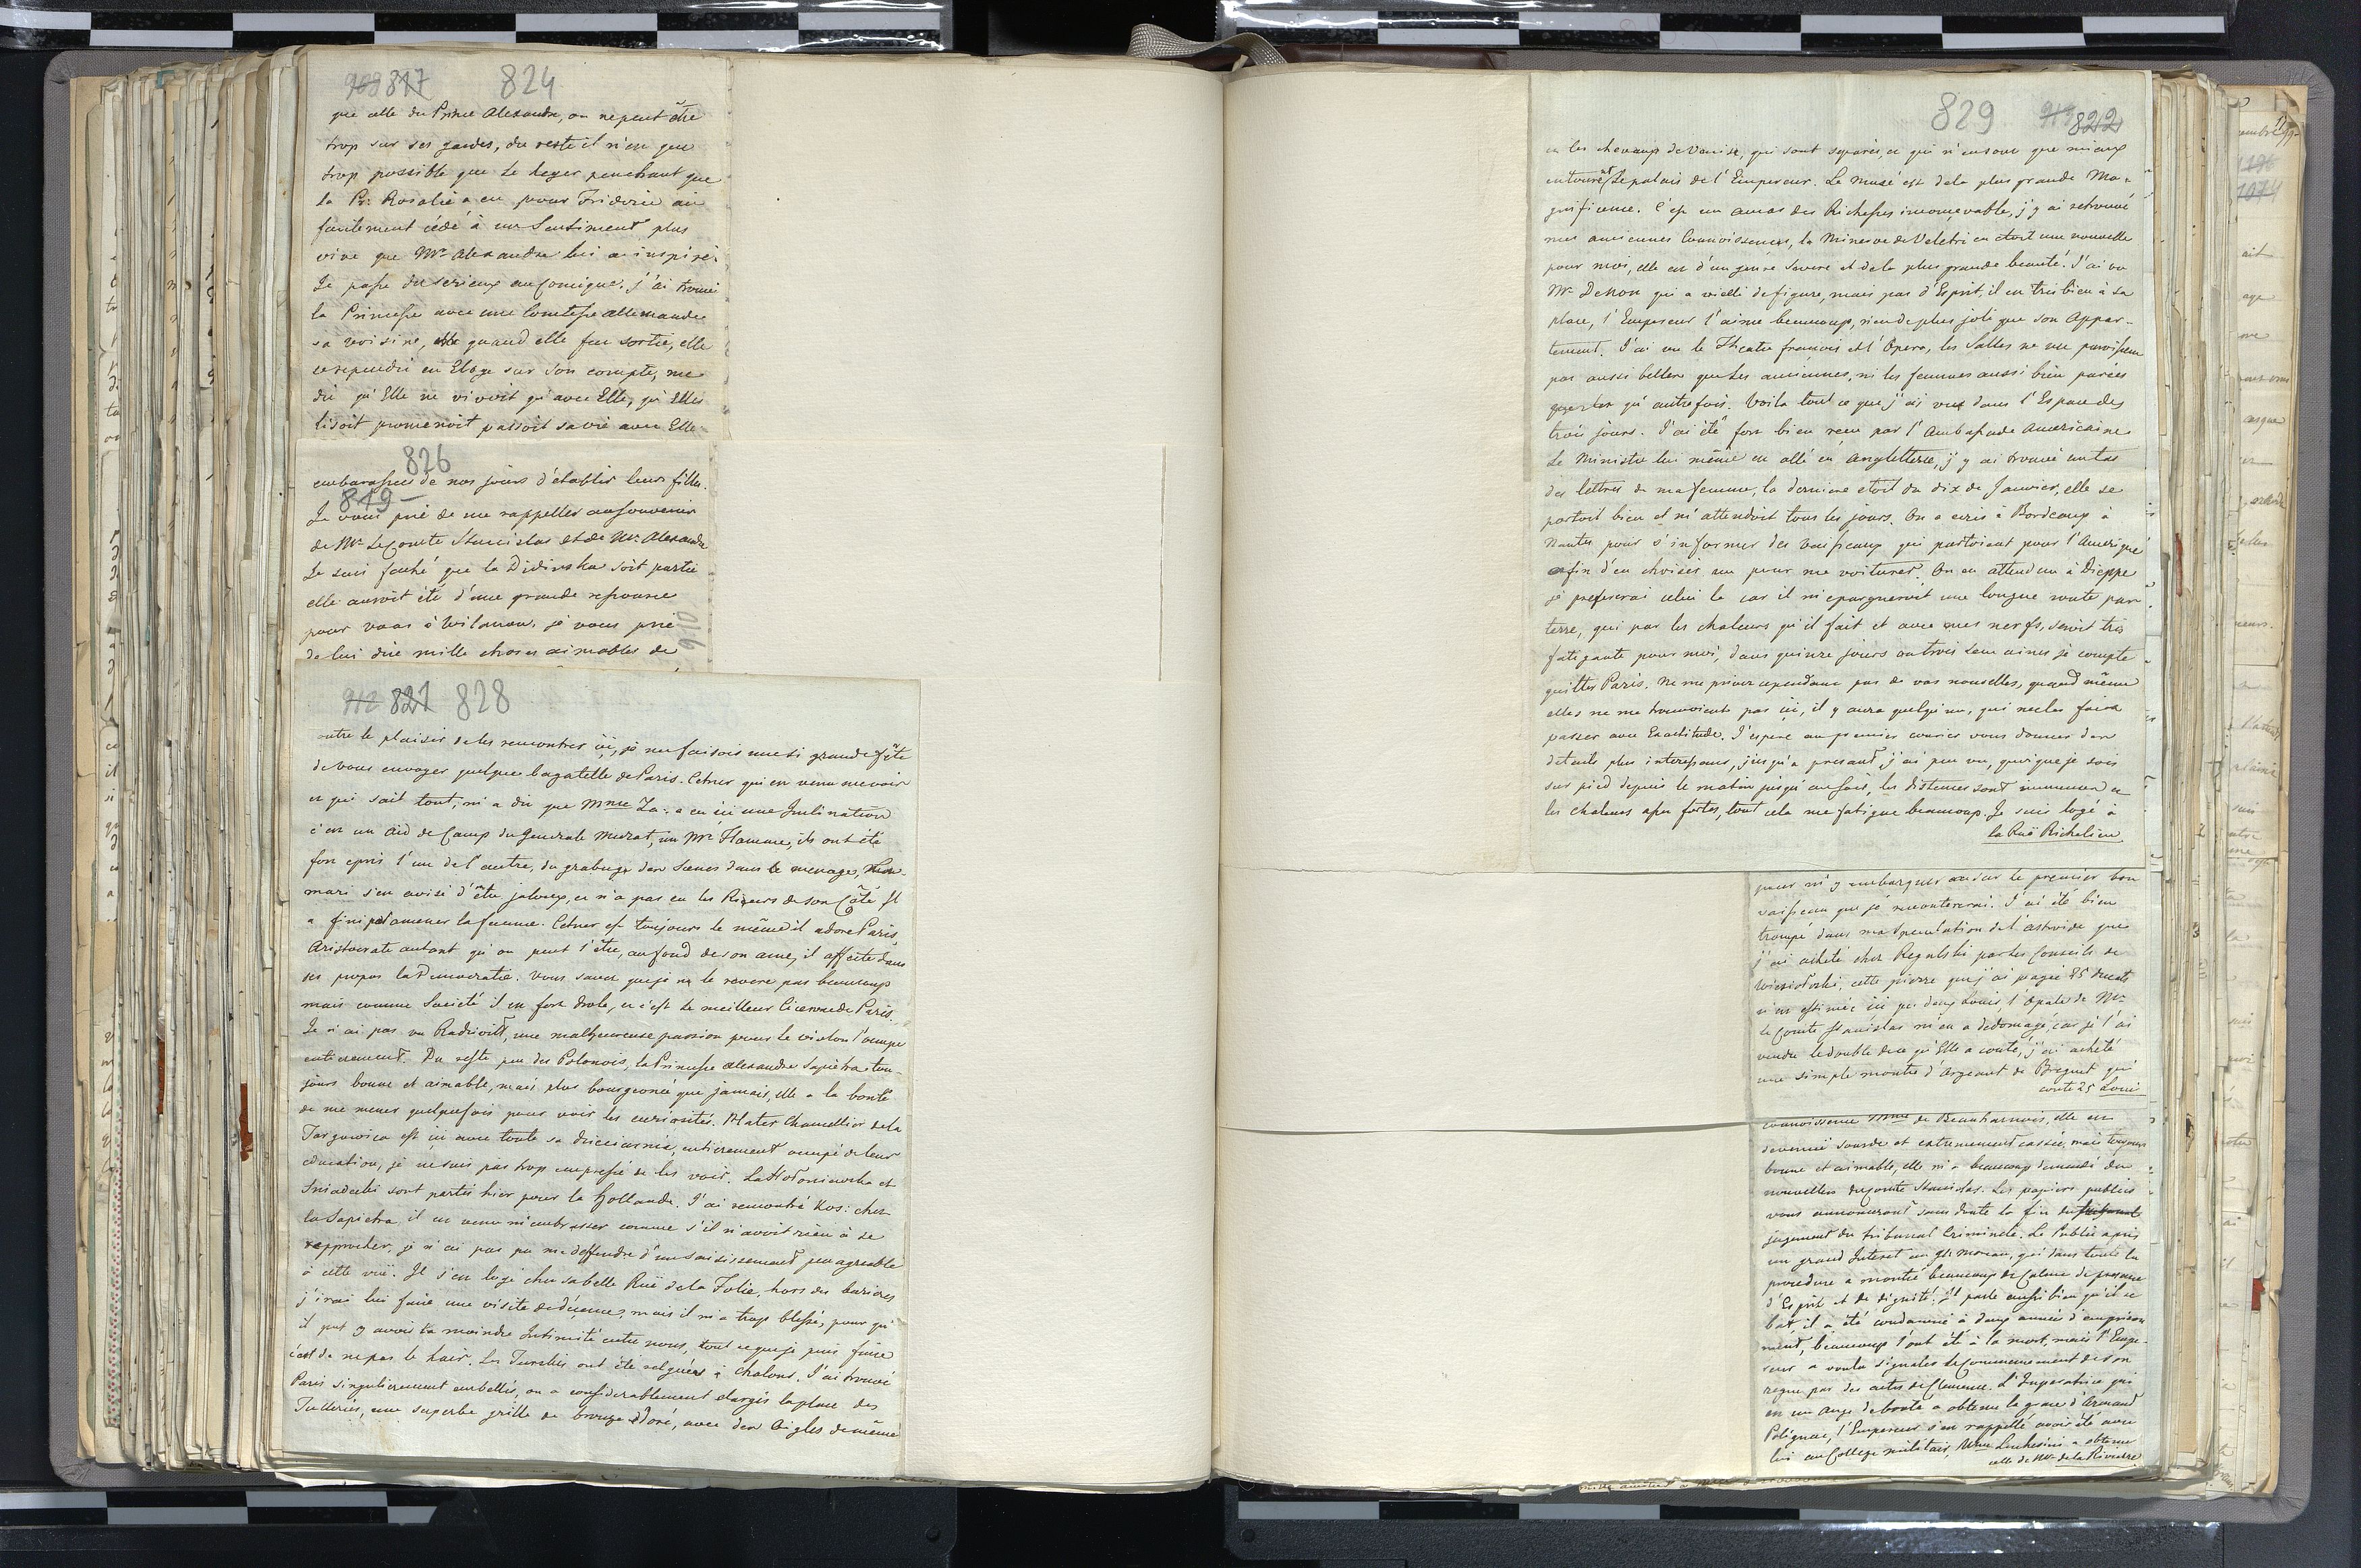 909 817 824
que celle du Prince Alexandre, on ne peut être
trop sur ses gardes, du reste il n'en que
trop possible que le leger penchant que
la Pr: Rosalie a eu pour Frideric ait
facilement cédé à un Sentiment plus
vive que Mr Alexandre lui a inspiré.
Je passe du serieux au comique. j'ai trouvé
la Princesse avec une Comtesse allemande
sa voisine, quand elle fut sortie, elle
se repandit en Eloge sur son compte, me
dit qu'Elle ne vivoit qu'avec Elle, qu'Elle
lisoit promenoit passoit sa vie avec Elle
826
embarassées de nos jours d'établir leurs filles.
819
Je vous prie de me rappeller au souvenir
de Mr le Comte Stanislas et de Mr Alexandre
Je suis faché que la soit partie
elle auroit été d'une grande ressource
pour vous à Wilanow, je vous prie
de lui dire mille choses aimables de
910
912 821 828
outre le plaisir de les rencontrer ici, je me faisois une si grande fête
de vous envoyer quelque bagatelle de Paris. Cetner qui en venu me voir
et qui sait tout, m'a dit que Mme Za: a eu ici une Inclination
c'en un aid de Camp du Generale Murat, un Mr Flamme, ils ont été
fort epris l'un de l'autre, du grabuge des scenes dans le menage,
mari s'en avisé d'être jaloux, et n'a pas eu les Rieurs de son Côté Il
a fini par amener la femme. Cetner est toujours le même il adore Paris
Aristocrate autant qu'on peut l'être, au fond de son ame, il affecte dans
ses propos la Democratie. Vous savez que je ne le revere pas beaucoup
mais comme Societé il en fort drole, et c'est le meilleur Ciceronede Paris.
Je n'ai pas vu Radziwill, une malheureuse passion pour le violon l'occupe
entierement. Du reste peu des Polonois, la Princesse Alexandre Sapieha tou-
jours bonne et aimable, mais plus bourgeonée que jamais, elle a la bonté
de me mener quelquefois pour voir les curiosités. Plater Chancellier de la
Targowica est ici avec toute sa dzieciarnia, entierement occupé de leur
education, je ne suis pas trop empressé de les voir. La et
Sniadecki sont partis hier pour la Hollande. J'ai rencontré Kos: chez
la Sapieha, il en venu m'embrasser comme s'il n'avoit rien à se
reprocher, je n'ai pas pu me deffendre d'un saisissement peu agreable
à cette vuë. Il s'en logé chez sa belle Ruë de la Folie, hors des barieres
j'irai lui faire une visite de decence, mais il m'a trop blessé, pour qu'
il put y avoir la moindre Intimité entre nous, tout ce que je puis faire
c'est de ne pas le haïr. Les ont été relgués à Chalons. J'ai trouvé
Paris singulierement embellis, on a considerablement elargis la place des
Tuileries, une superbe grille de bronze doré, avec des Aigles de même
829 913 822
en les chevaux de Venise, qui sont separés, ce qui n'ensont que mieux
entourent le palais de l'Empereur. Le Musé est de la plus grande Ma-
gnificence. C'est un amas des Richesses inconcevable, j'y ai retrouvé
mes anciennes Connoissances, la Minerve de Veletri en étoit une nouvelle
pour moi, elle est d'un genre severe et de la plus grande beauté. J'ai vu
Mr Denon qui a vielli de figure, mais pas d'Esprit, il en très bien à sa
place, l'Empereur l'aime beaucoup, rien de plus joli que son Appar-
tement. J'ai vu le Theatre françois et l'Opera, les Salles ne me paroissent
pas aussi belles que les anciennes, ni les femmes aussi bien parées
qu'autrefois. Voila tout ce que j'ai vu dans l'Espace des
trois jours. J'ai été fort bien recu par l'Ambassade Americaine
Le Ministre lui même en allé en Angletterre, j'y ai trouvé un tas
des lettres de ma femme, la derniere etoit du dix de Janvier, elle se
portoit bien et m'attendoit tous les jours. On a ecris à Bordeaux à
Nantes pour s'informer des vaisseaux qui partoient pour l'Amerique
afin d'en choisir un pour me voiturer. On en attend un à Dieppe
je prefererai celui la car il m'epargneroit une longue route par
terre, qui par les chaleurs qu'il fait et avec mes nerfs, seroit très
fatigante pour moi, dans quinze jours ou trois semaines je compte
quitter Paris. Ne me privez cependant pas de vos nouvelles, quand même
elles ne me trouvoient pas ici, il y aura quelqu'un, qui me les faira
passer avec Exactitude. J'espere au premier courier vous donner des
details plus interessans, jusqu'a present j'ai peu vu, quoique je sois
sur pied depuis le matin jusqu'au soir, les distances sont immenses et
les chaleurs assez fortes, tout cela me fatigue beaucoup. Je suis logé à
la Ruë Richelieu
pour m'y embarquer sur le premier bon
vaisseau que je rencontererai. J'ai été bien
trompé dans ma speculation de l'astroide que
j'ai acheté chez Regulski par les Conseils de
cette pierre que j'ai payée 85 ducats
n'en estimée ici que deux Louis, l'Opale de Mr
le Comte Stanislas m'en a dedomagé, car je l'ai
vendu le double de ce qu'Elle a couté, j'ai acheté
une simple montre d'Argeant de Breguet qui
coute 25 Louis
connoissence Mme de Beauharnois, elle en
devenue sourde et extremement cassée, mais toujours
bonne et aimable, elle m'a beaucoup demandé des
nouvelles du Comte Stanislas. Les papiers publics
vous annonceront sans doute la fin du
jugement du tribunal Criminele. Le Public a pris
un grand Interet au Gl: Moreau, qui dans toute la
procedure a montré beaucoup de Calme de presence
d'Esprit et de dignité. Il parle aussi bien qu'il se
bat il a été condamné à deux années d'emprison
nement, beaucoup l'ont été à la mort, mais l'Empe-
reur a voulu signaler le Commencement de son
regne par des actes de Clemence. L'Imperatrice qui
en un Ange de bonté a obtenu la grace d'Armand
Polignac, l'Empereur s'en rappellé avoir été avec
lui au College militair, Mme Luchesini a obtenu
celle de Mr de la Rivierre